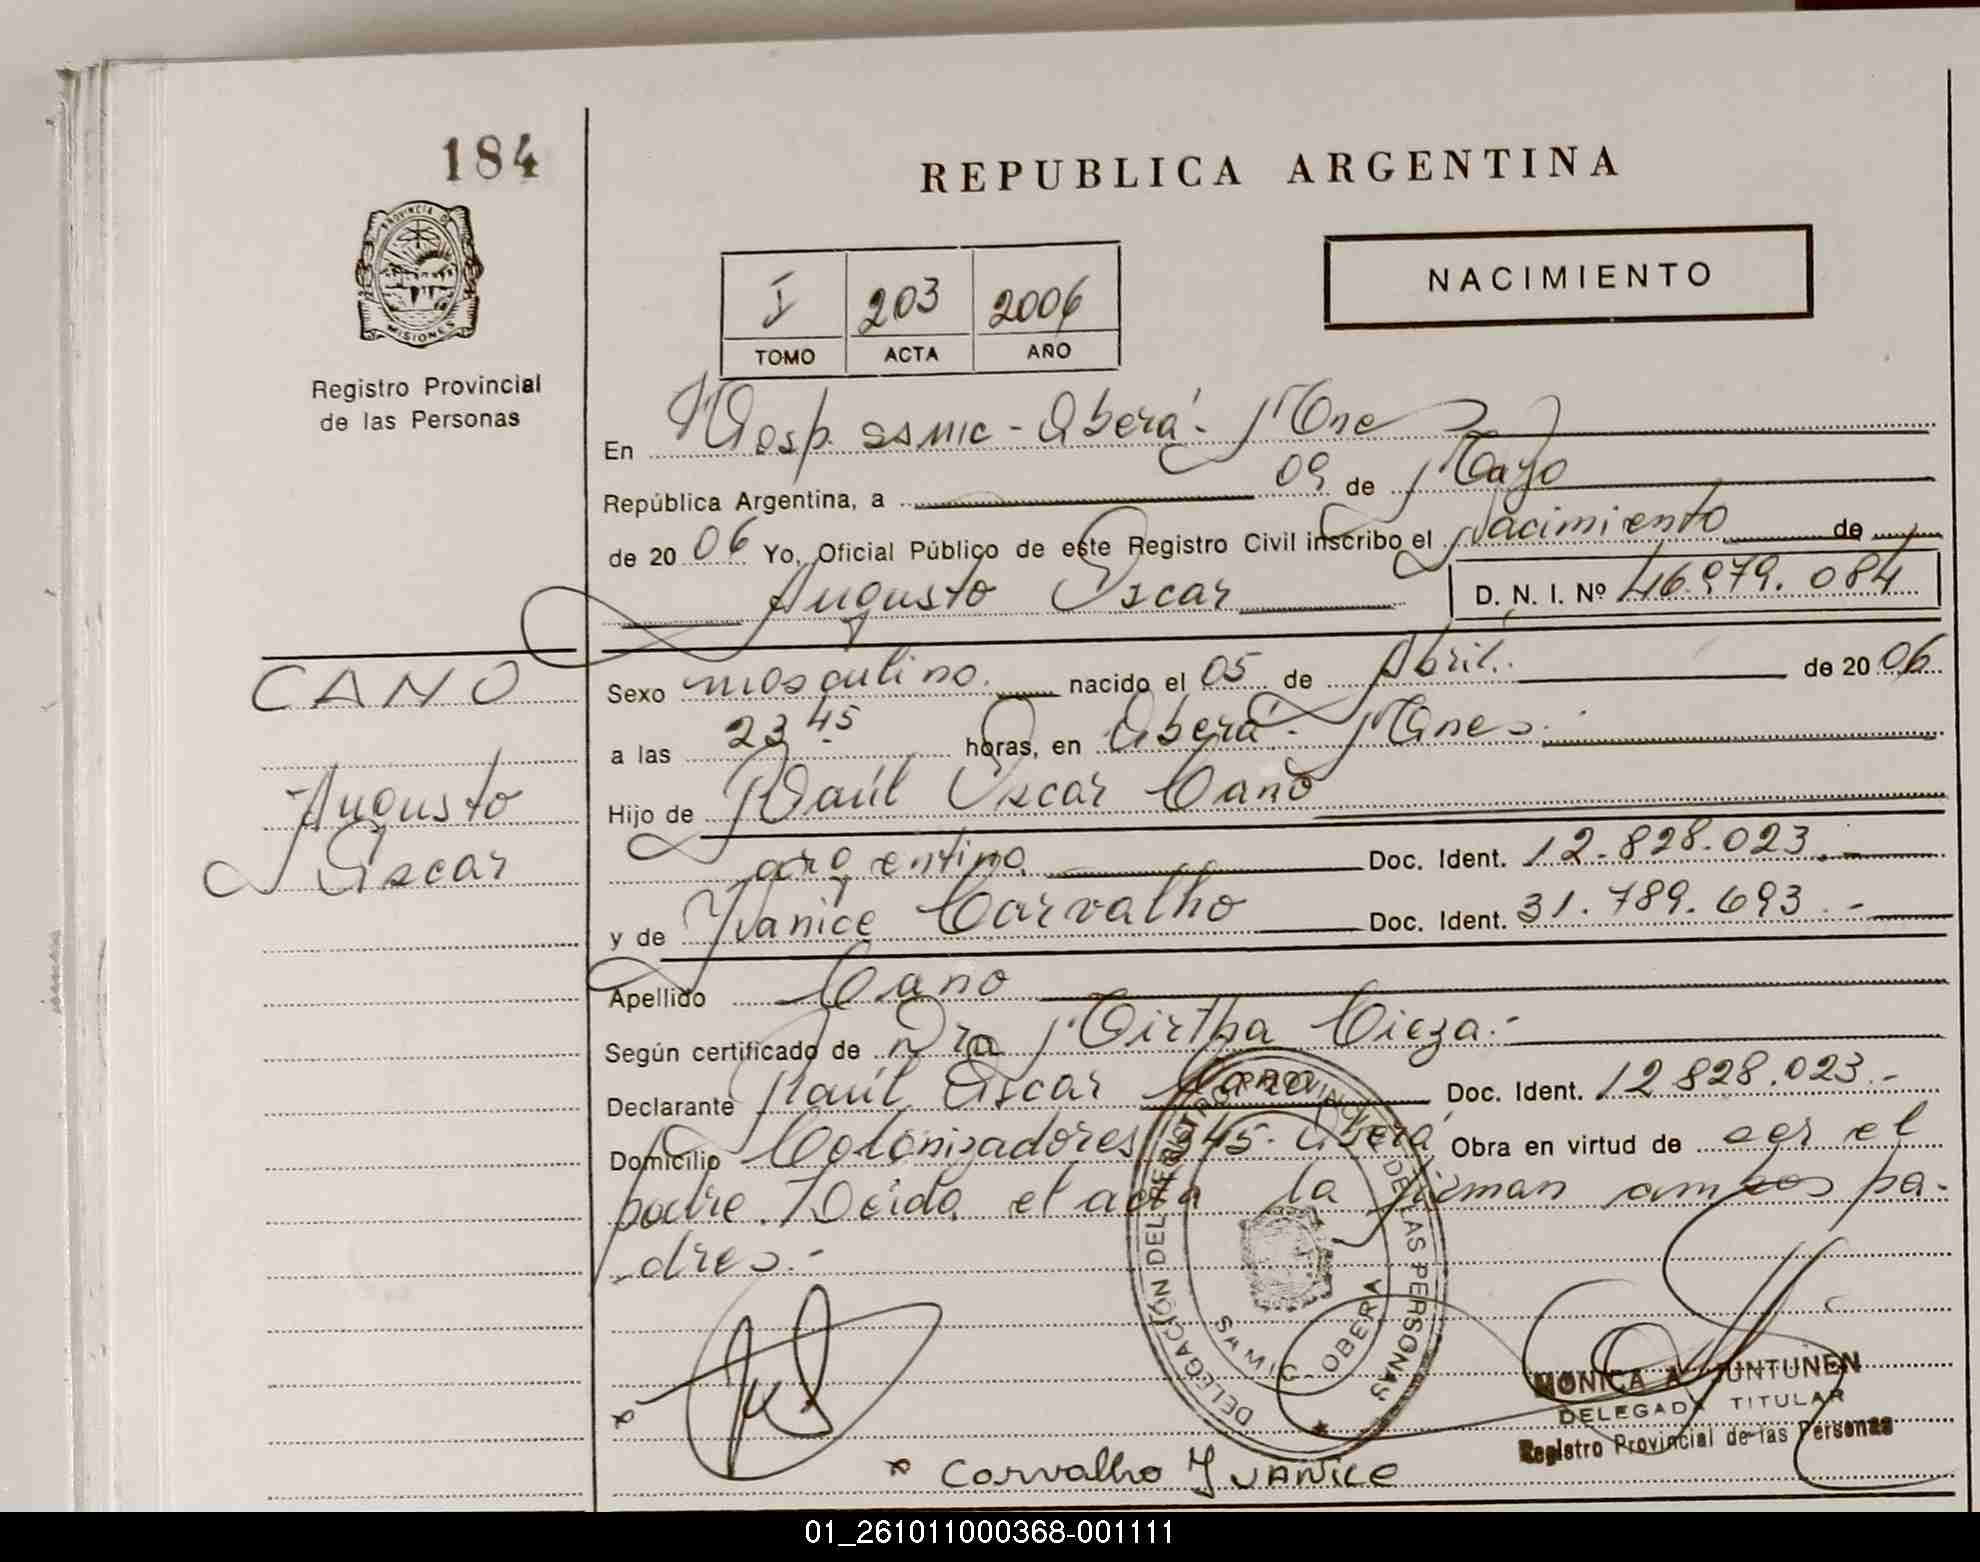 184
REPUBLICA ARGENTINA
PROVINCIA DE
MISIONES
Registro Provincial
de las Personas
NACIMIENTO
I 203 2006
TOMO ACTA AÑO
En Hosp. SAMIC - Oberá - Mnes
República Argentina, a 09 de Mayo
de 2006 Yo, Oficial Público de este Registro Civil inscribo el Nacimiento de
Augusto Oscar D. N. I. Nº 46.979.084
CANO
Augusto
Oscar
Sexo masculino. nacido el 05 de Abril. de 2006
a las 23 45 horas, en Oberá - Mnes.
Hijo de Raúl Oscar Cano
argentino Doc. Ident. 12.828.023.-
y de Yvanice Carvalho Doc. Ident. 31.789.693.-
Apellido Cano
Según certificado de Dra Mirtha Cieza.-
Declarante Raúl Oscar Cano Doc. Ident. 12.828.023.-
Domicilio Colonizadores 345- Oberá Obra en virtud de ser el
padre. Leída el acta la firman ambos pa-
dres.-
DELEGACIÓN DEL REGISTRO PROVINCIAL DE LAS PERSONAS
OBERA
MONICA A. JUNTUNEN
DELEGADA TITULAR
Registro Provincial de las Personas
x Carvalho YVANICE
01_261011000368-001111